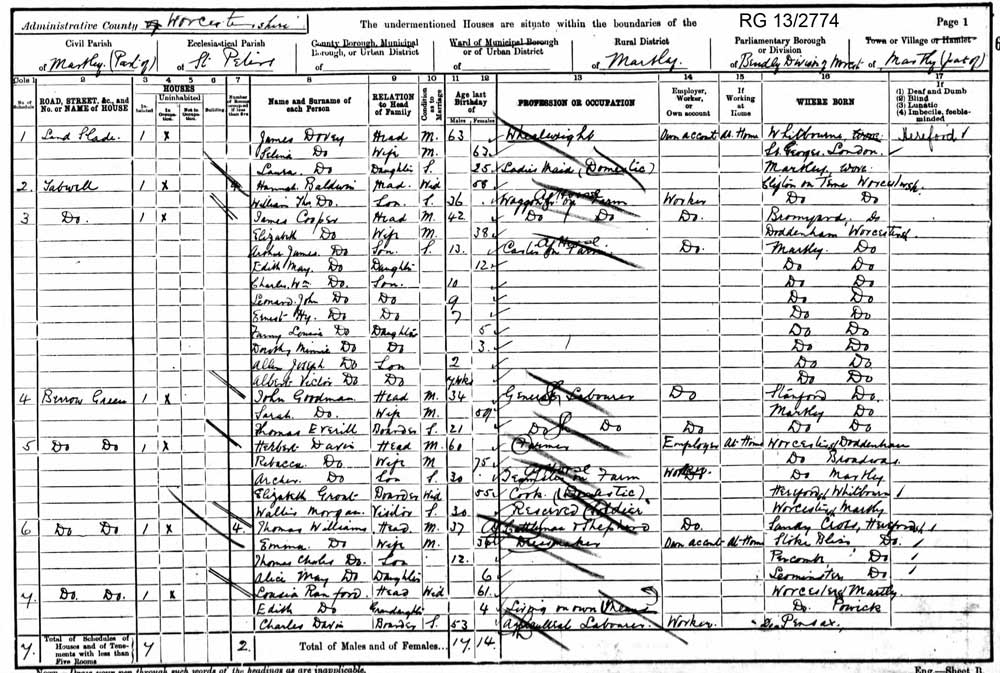 Administrative County of Worcestershire The undermentioned Houses are situate within the boundaries of the RG 13/2774 Page 1
Civil Parish Ecclesiastical Parish County Borough, Municipal Borough, or Urban District Ward of Municipal Borough or of Urban District Rural District Parliamentary Borough or Division Town or Village or Hamlet
of Martley (Part of) of St. Peters of of of Martley of Bewdley Division of Worcest of Martley (part of)
Cols 1 2 3 4 5 6 7 8 9 10 11 12 13 14 15 16 17
No. of Schedule ROAD, STREET, &c., and No. or NAME of HOUSE HOUSES Inhabited Uninhabited In Occupation Not in Occupation Building Number of Rooms occupied if less than five Name and Surname of each Person RELATION to Head of Family Condition as to Marriage Age last Birthday of Males Females PROFESSION OR OCCUPATION Employer, Worker, or Own account If Working at Home WHERE BORN If (1) Deaf and Dumb (2) Blind (3) Lunatic (4) Imbecile, feeble-minded
1 1 x James Dovey Head M. 63 Wheelwright Own account At Home Whitbourne Hereford
Selina Do Wife M. 63 St. Georges London
Laura Do Daughter S. 25 Ladies Maid (Domestic) Martley Worc
2. 1 x 4 Hannah Baldwin Head. Wid 58 Clifton on Teme Worcestersh.
William Do. Son. S. 36 Waggoner on Farm Worker Do Do
3 Do. 1 x James Cooper Head M. 42 Do Do Do. Bromyard Do
Elizabeth Do Wife M. 38 Doddenham Worcestersh
Arthur James Do Son. S. 13. Carter on Farm Do. Martley Do
Edith May. Do Daughter 12 Do Do
Charles Wm Do. Son. 10 Do Do
Leonard John Do Do 9 Do Do
Ernest Hy. Do Do 7 Do Do
Fanny Louisa Do Daughter 5 Do Do
Dorothy Minnie Do Do 3. Do Do
Allen Joseph Do Son 2 Do Do
Albert Victor Do Do Do Do
4 Berrow Green 1 x John Goodman Head M. 34 General Labourer Do Stanford Do
Sarah Do. Wife M. 57 Martley Do
Thomas Everill Boarder S. 21 Do Do Do Do Do
5 Do Do 1 x Herbert Davis Head M. 60 Farmer Employer At Home Worcestersh Doddenham
Rebecca Do Wife M 75 Do Broadwas
Archer Do Son S 30 on Farm Worker Do Martley
Elizabeth Grout Boarder Wid 55 Cook (Domestic) Hereford Whitbourn
Wallis Morgan Visitor S. 30 Reserved Soldier Worcestersh Martley
6 Do Do 1 x 4. Thomas Williams Head. M. 37 Cattleman & Shepherd Do. Hereford
Emma Do Wife M. 36 Dressmaker Own account At Home Stoke Bliss Do.
Thomas Charles Do. Son 12. Pencombe Do
Alice May Do Daughter 6 Leominster Do
7. Do. Do. 1 x Louisa Ranford Head Wid 61 Worcestersh Martley
Edith Do Grandaughter 4 Living on own Means Do. Powick
Charles Davis Boarder S. 53 Agricultural Labourer Worker. Do Pensax.
7. Total of Schedules of Houses and of Tenements with less than Five Rooms 7 2. Total of Males and of Females... 17 14
Eng.—Sheet B.